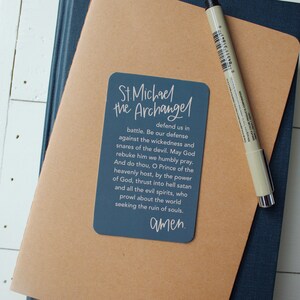 St Michael
the Archangel
defend us in
battle. Be our defense
against the wickedness and
snares of the devil. May God
rebuke him we humbly pray.
And do thou, O Prince of the
heavenly host, by the power
of God, thrust into hell satan
and all the evil spirits, who
prowl about the world
seeking the ruin of souls.
amen.